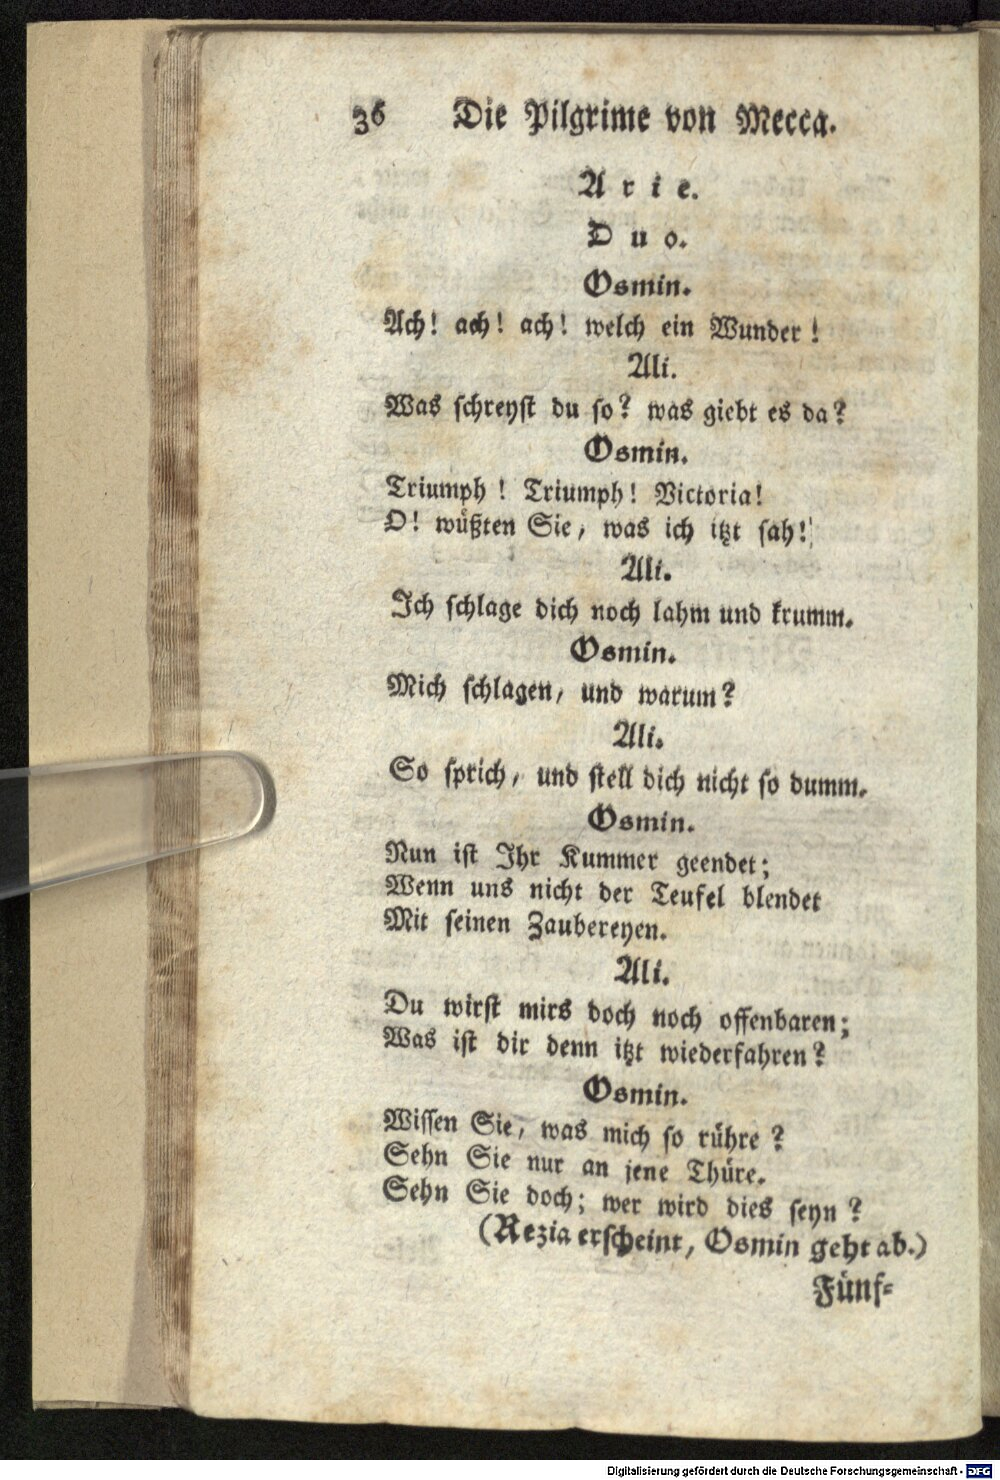 36 Die Pilgrime von Mecca.
Arie.
Duo.
Osmin.
Ach! ach! ach! welch ein Wunder!
Ali.
Was schreyst du so? was giebt es da?
Osmin.
Triumph! Triumph! Victoria!
O! wüßten Sie, was ich itzt sah!
Ali.
Ich schlage dich noch lahm und krumm.
Osmin.
Mich schlagen, und warum?
Ali.
So sprich, und stell dich nicht so dumm.
Osmin.
Nun ist Ihr Kummer geendet;
Wenn uns nicht der Teufel blendet
Mit seinen Zaubereyen.
Ali.
Du wirst mirs doch noch offenbaren;
Was ist dir denn itzt wiederfahren?
Osmin.
Wissen Sie, was mich so rühre?
Sehn Sie nur an jene Thüre.
Sehn Sie doch; wer wird dies seyn?
(Rezia erscheint, Osmin geht ab.)
Fünf-
Digitalisierung gefördert durch die Deutsche Forschungsgemeinschaft - DFG